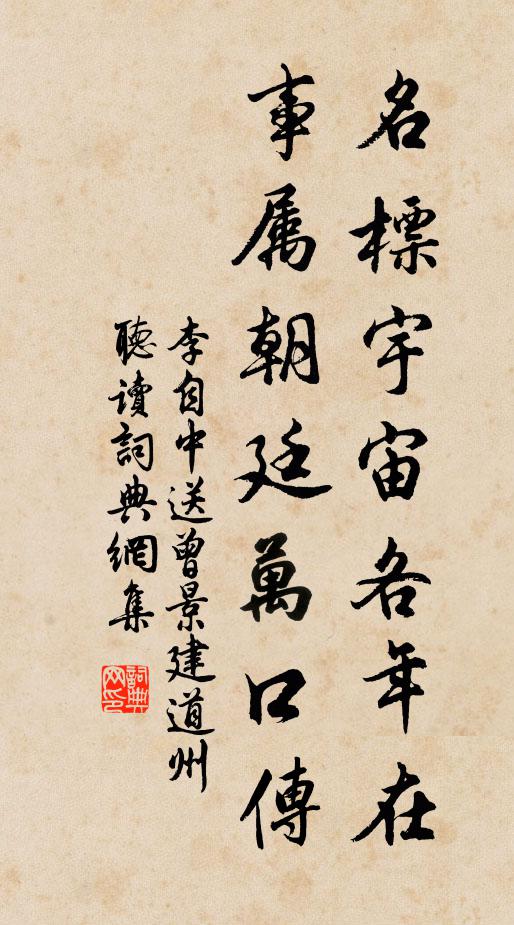 名標宇宙各年在
事属朝廷萬口傳
李自中送曾景建道州
聽讀詞典網集
詞典
网印